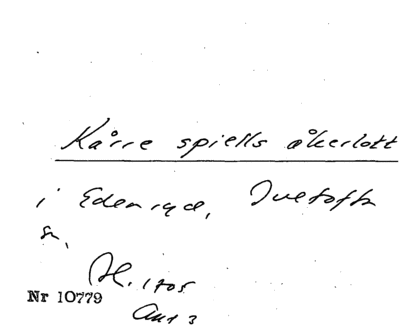 Kårre spiells åkerlott
i Edenryd, Ivetofta
sn.
Af. 1705
Nr 10779
Ant 3